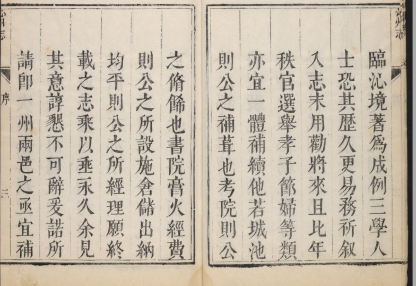 臨沁境著爲成例三學人
士恐其歷久更易務祈叙
入志末用勸將來且比年
秩官選舉孝子節婦等類
亦宜一體補續他若城池
則公之補葺也考院則公
之脩餙也書院膏火經費
則公之所設施倉儲出納
均平則公之所經理願終
載之志乘以垂永久余見
其意諄懇不可辭爰諾所
請卽一州兩邑之亟宜補
序
三